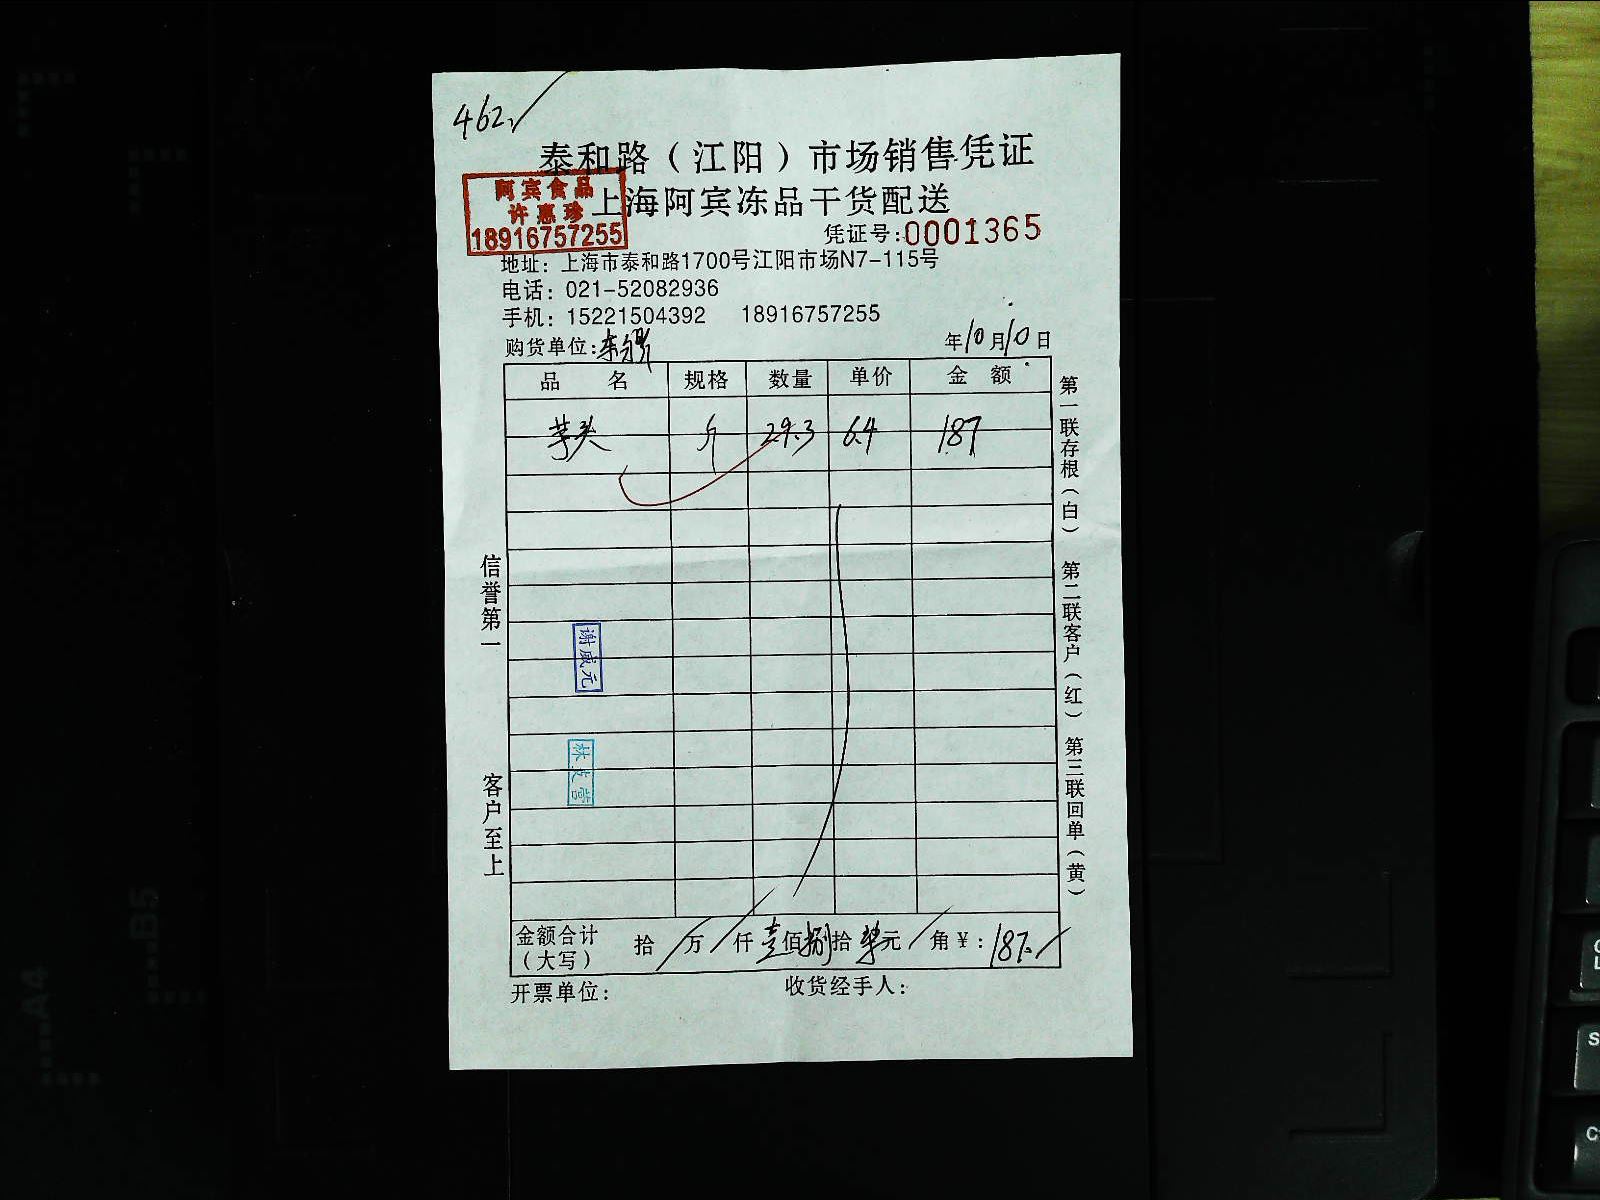 462
泰和路（江阳）市场销售凭证
阿宾食品
许惠珍
18916757255
上海阿宾冻品干货配送
凭证号:0001365
地址：上海市泰和路1700号江阳市场N7-115号
电话：021-52082936
手机：15221504392 18916757255
购货单位:
年10月10日
品 名 规格 数量 单价 金 额
芋头 斤 29.3 6.4 187
第一联存根（白） 第二联客户（红） 第三联回单（黄）
信誉第一 客户至上
谢威元
林
金额合计（大写） 拾 万 仟壹佰捌拾柒元 角￥：187.
开票单位： 收货经手人：
B5
A4